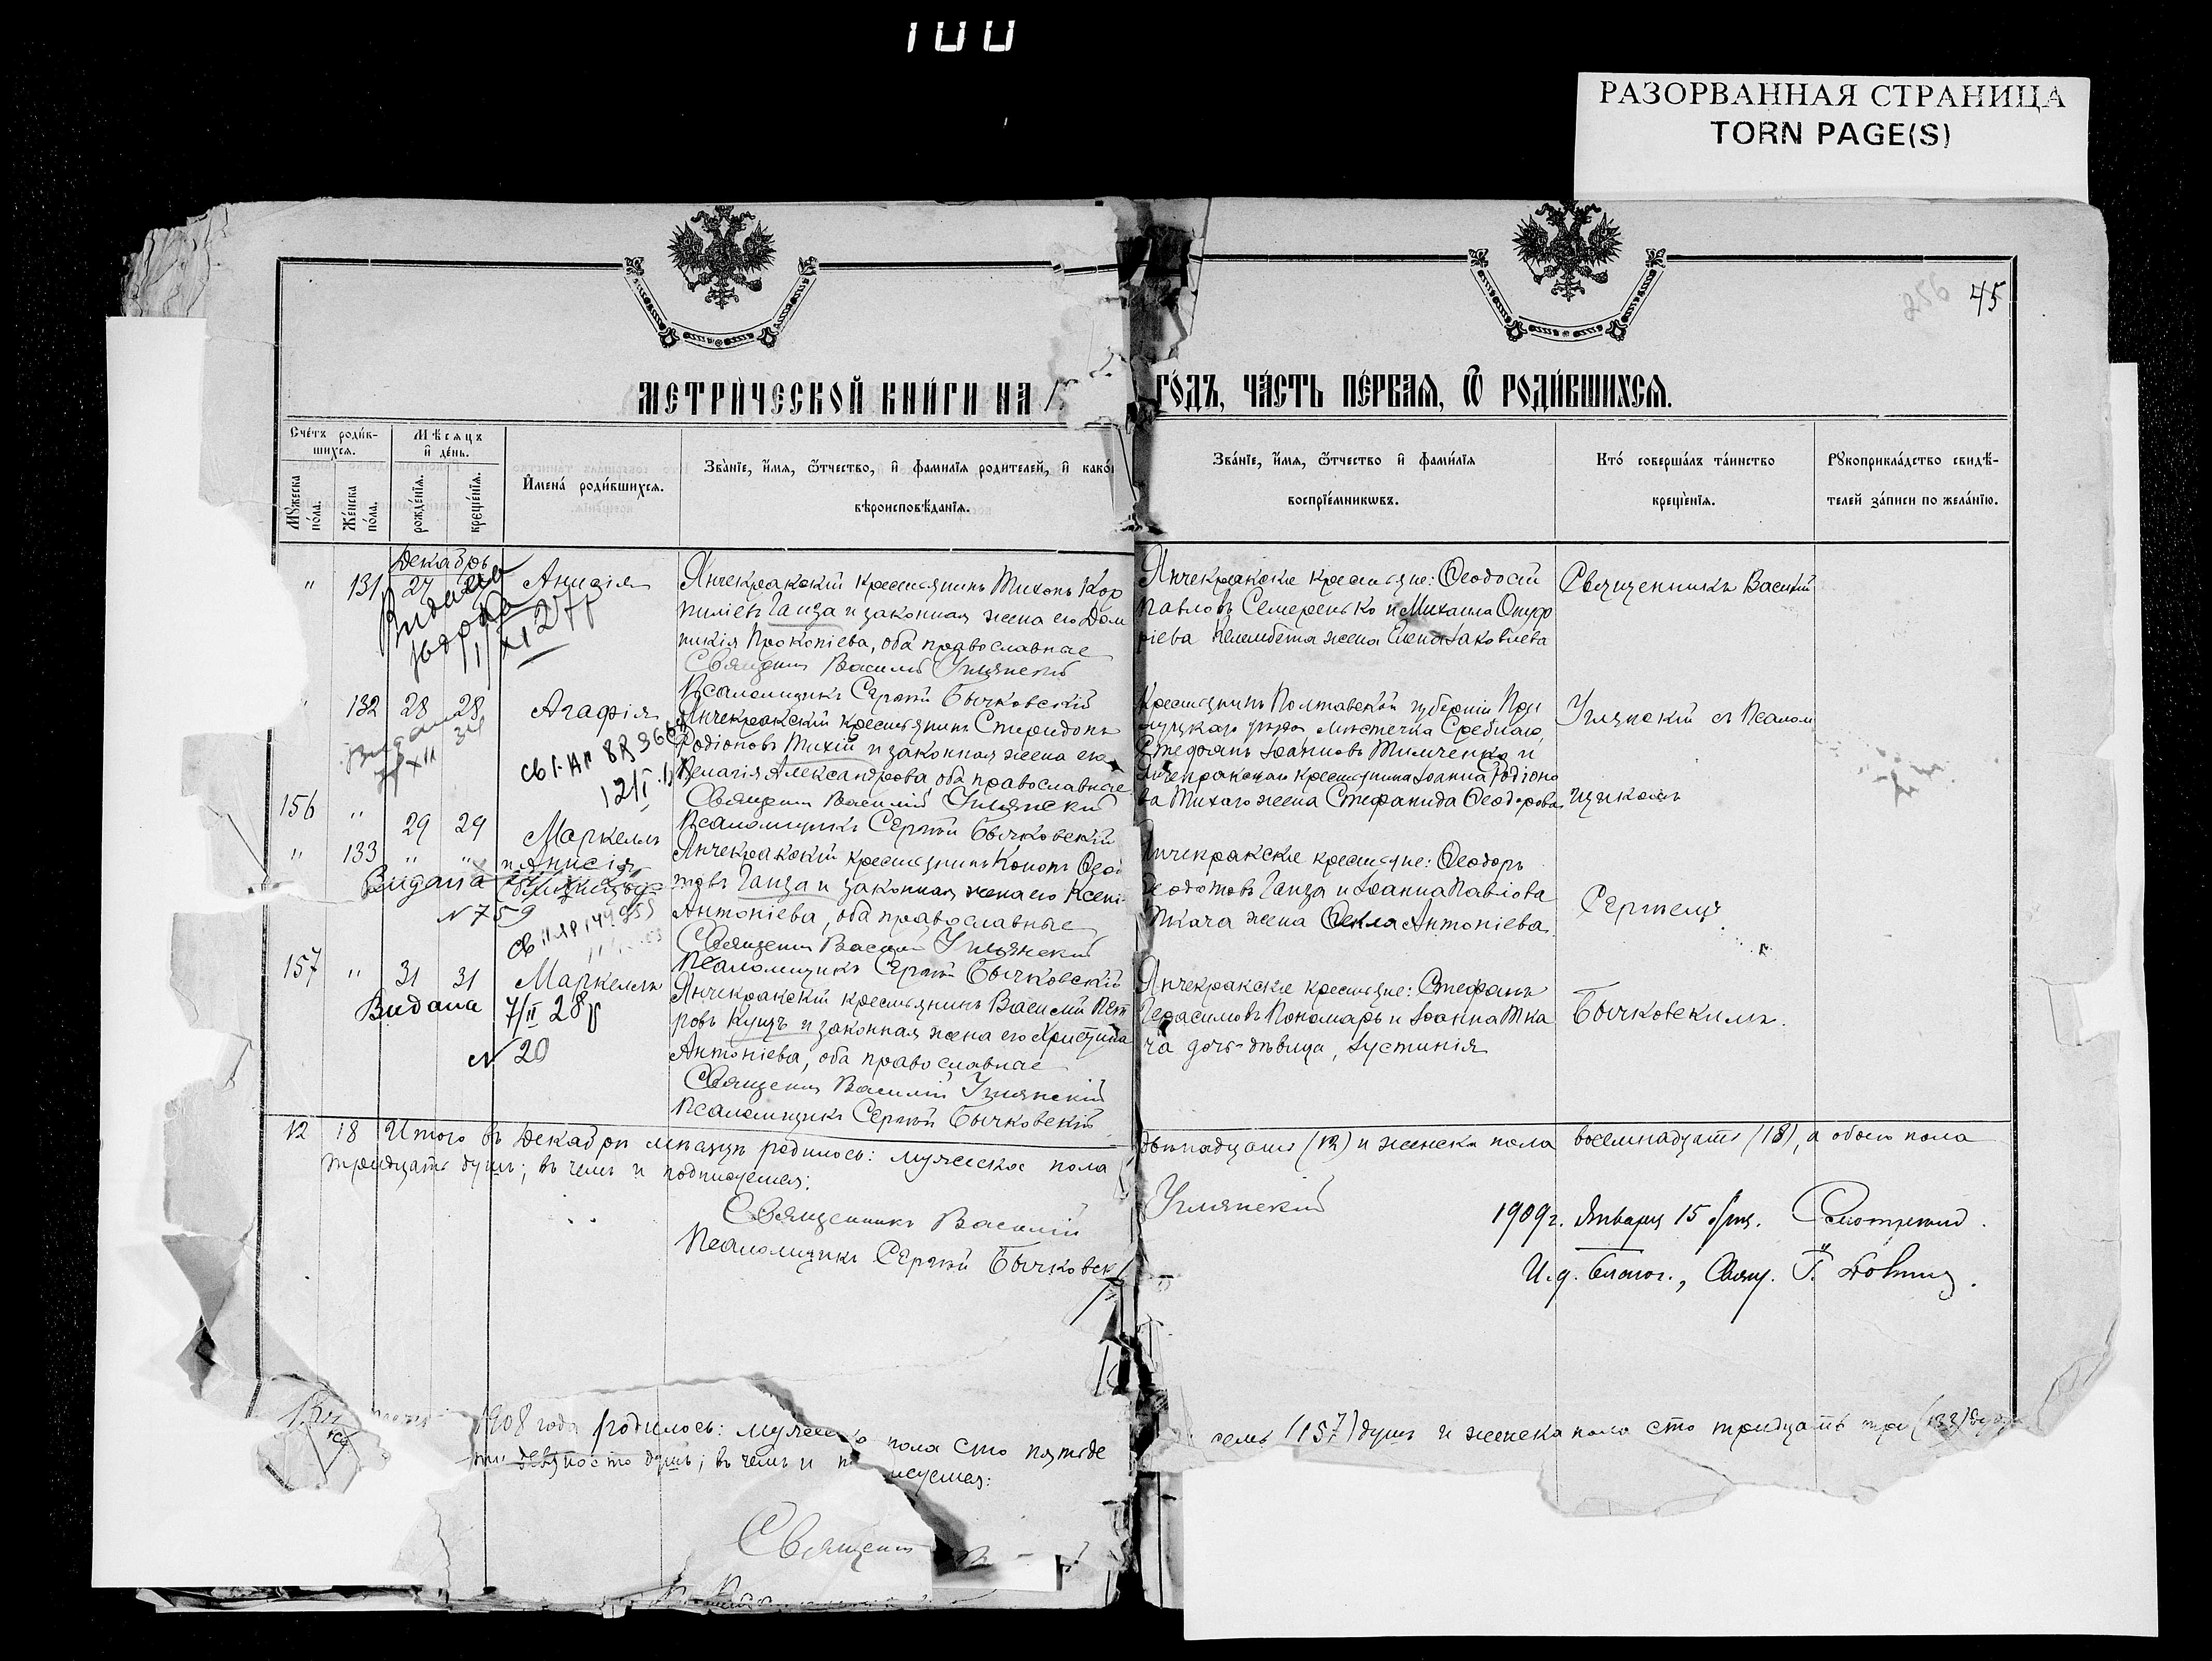 100
РАЗОРВАННАЯ СТРАНИЦА
TORN PAGE(S)
45
256
МЕТРИЧЕСКОЙ КНИГИ НА 1
ГОДЪ, ЧАСТЬ ПЕРВАЯ, Ѿ РОДИВШИХСЯ.
Счетъ родив-
шихся.
Мужеска пола.
Женска пола.
Мѣсяцъ
и день.
рожденія.
крещенія.
Имена родившихся.
Званіе, имя, ѿтчество, и фамилія родителей, и како
вѣроисповѣданія.
Званіе, имя, ѿтчество и фамилія
воспріемникωвъ.
Кто совершалъ таинство
крещенія.
Рукоприкладство свидѣ-
телей записи по желанію.
Декабрь
" 131 27
Анисія
Янчекракскій крестьянинъ Тихонъ Кор
ниліевъ Ганза и законная жена его Дом
никія Прокопіева, оба православные
Священ Василій Углянскій
Псаломщикъ Сергій Бычковскій
Янчекракские крестьяне: Ѳеодосій
Павловъ Семеренько и Михаила Онуф
ріева жена Елена Іаковлева
Священникъ Василій
Видана
1/XI 27
132 28 28
Агафія
Янчекракскій крестьянинъ Спиридонъ
Родіоновъ Тихій и законная жена его
Пелагія Александрова, оба православные
Священ Василій Углянскій
Псаломщикъ Сергій Бычковскій
Крестьянинъ Полтавской губерніи При
луцкаго уѣзда мѣстечка Сребнаго
Стефанъ Іоанновъ Тимченко и
Янчекракскаго крестьянина Іоанна Родіоно
ва Тихаго жена Стефанида Ѳеодорова
Углянскій съ Псалом
щикомъ
12/I
156 " 29 29
Маркеллъ
" 133 " "
и Анисія
(близнецы)
Янчекракскій крестьянинъ Кононъ Ѳеод
товъ Ганза и законная жена его Ксені
Антоніева, оба православные
Священ Василій Углянский
Псаломщикъ Сергій Бычковскій
Янчекракские крестьяне: Ѳеодоръ
Ѳеодотовъ Ганза и Іоанна Павлова
Ткача жена Ѳекла Антоніева
Сергіемъ
Видана
N 759
157 " 31 31
Маркеллъ
Янчекракскій крестьянинъ Василій Пет
ровъ Куцъ и законная жена его Христина
Антоніева, оба православные
Священ Василій Углянскій
Псаломщикъ Сергій Бычковскій
Янчекракские крестьяне: Стефанъ
Герасимовъ Пономарь и Іоанна Тка
ча дочь-дѣвица, Іустинія
Бычковскимъ.
Видана 7/II 28 г
N 20
12 18 Итого въ Декабрѣ мѣсяцѣ родилось: мужеска пола
двѣнадцать (12) и женска пола восемнадцать (18), а обоего пола
тридцать душъ; въ чемъ и подписуемся:
Священникъ Василій
Углянскій
Псаломщикъ Сергій Бычковск
1909 г. Января 15 дня. Смотрѣлъ.
И. д. Благоч., Свящ. Г.
1908 года родилось: мужеска пола сто пятьде
семь (157) душъ и женска пола сто тридцать три (133) душъ
девяносто душъ; въ чемъ и п исуемся:
Священ